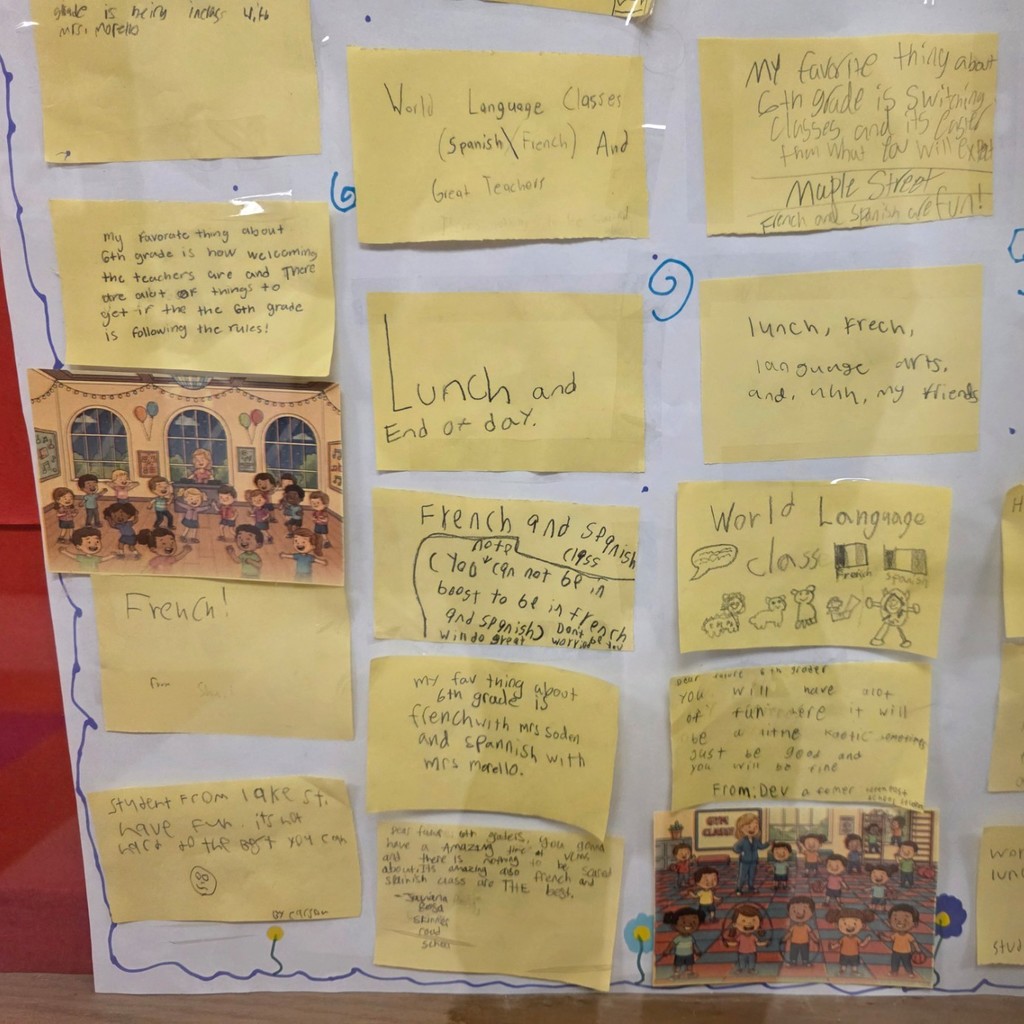 grade is being in class with
Mrs. Morello
My Favorate thing about
6th grade is how welcoming
the teachers are and There
are alot of things to
get if the the 6th grade
is following the rules!
French!
From
Student From lake St.
have Fun. its not
hard do the best you can
BY Carson
World Language Classes
(Spanish\French) And
Great Teachers
Lunch and
End of day.
French and Spanish
class
note
(You can not be in
boost to be in french
and Spanish) Don't be
worried you
win do great
my fav thing about
6th grade is
french with mrs Soden
and spannish with
mrs morello.
Dear future 6th graders, you gonna
have a Amazing time
and there is nothing to be scared
about. Its amazing also french and
Spanish class are THE best.
Skinner
road
School
My favorite thing about
6th grade is Switching
Classes and its Easier
then what You will expet
Maple Street
French and Spanish are fun!
lunch, Frech,
language arts,
and, uhh, my friends
World Language
class
French
Spanish
Dear future 6th grader
You will have alot
of fun here it will
be a little kaotic sometimes
Just be good and
you will be fine
From: Dev a former
GYM
CLASS!